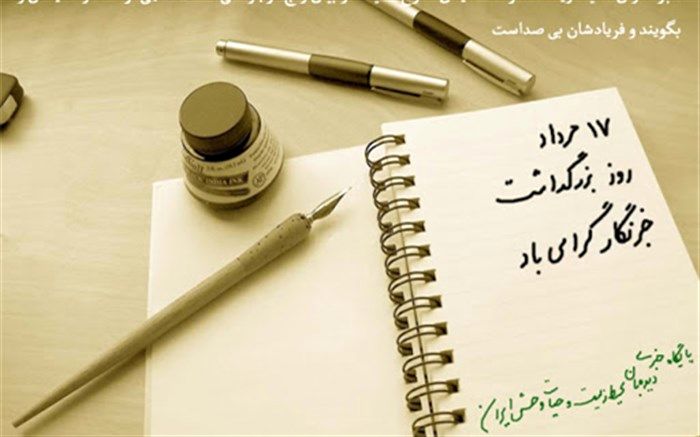 بگویند و فریادشان بی صداست
۱۷ مرداد
روز بزرگداشت
خبرنگار گرامی باد
پایگاه خبری
دیده‌بان محیط زیست و حیات وحش ایران
INDIA INK